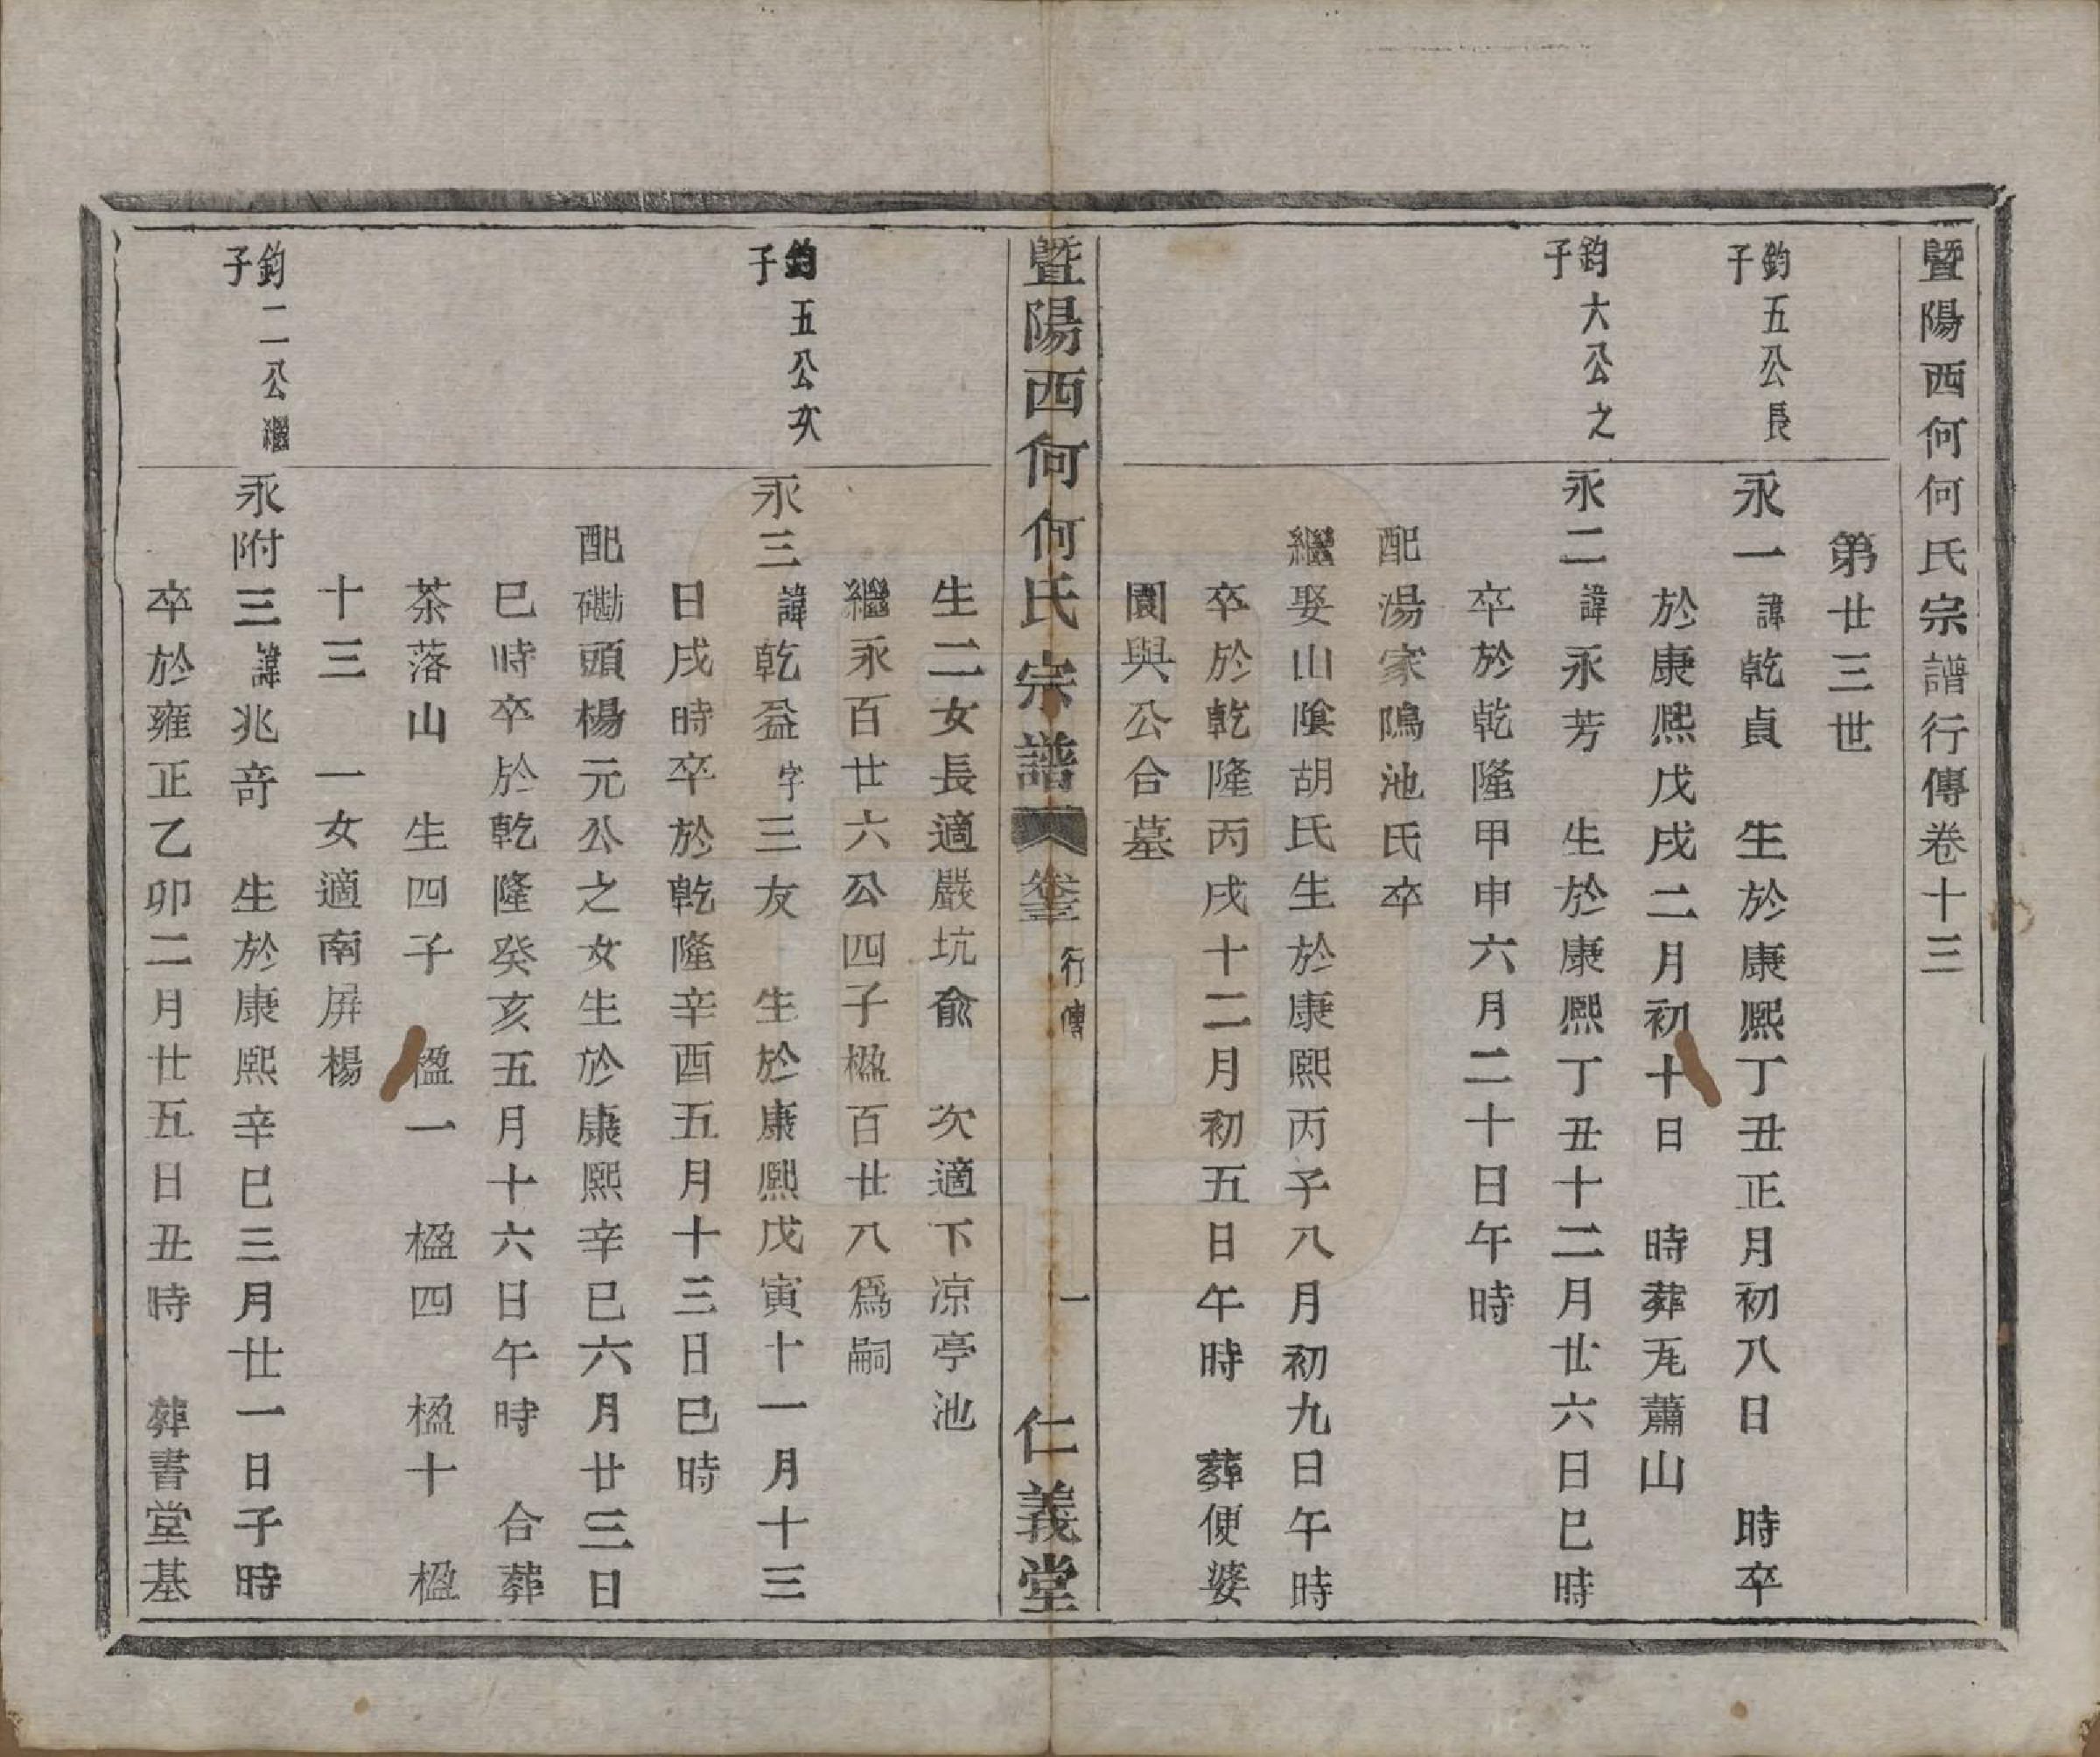 暨陽西何何氏宗譜行傳卷十三
第廿三世
鈞五公長子
永一諱乾貞　生於康熙丁丑正月初八日　時卒
於康熙戊戌二月初十日　時葬旡蕭山
鈞大公之子
永二諱永芳　生於康熙丁丑十二月廿六日巳時
卒於乾隆甲申六月二十日午時
配湯家鳴池氏卒
繼娶山陰胡氏生於康熙丙子八月初九日午時
卒於乾隆丙戌十二月初五日午時　葬便婆
園與公合墓
暨陽西何何氏宗譜　卷十三　行傳　一　仁義堂
生二女長適嚴坑俞　次適下凉亭池
繼永百廿六公四子楹百廿八爲嗣
鈞五公次子
永三諱乾益字三友　生於康熙戊寅十一月十三
日戌時卒於乾隆辛酉五月十三日巳時
配磡頭楊元公之女生於康熙辛巳六月廿三日
巳時卒於乾隆癸亥五月十六日午時　合葬
茶落山　生四子　楹一　楹四　楹十　楹
十三　一女適南屏楊
鈞二公繼子
永附三諱兆奇　生於康熙辛巳三月廿一日子時
卒於雍正乙卯二月廿五日丑時　葬書堂基